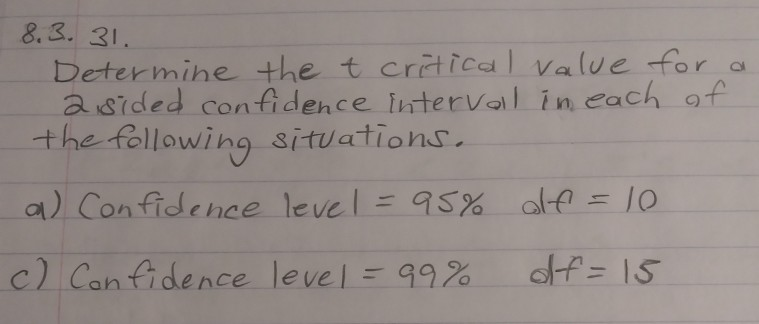 8.3. 31.
Determine the t critical value for a
2 sided confidence interval in each of
the following situations.
a) Confidence level = 95% df = 10
c) Confidence level = 99% df = 15